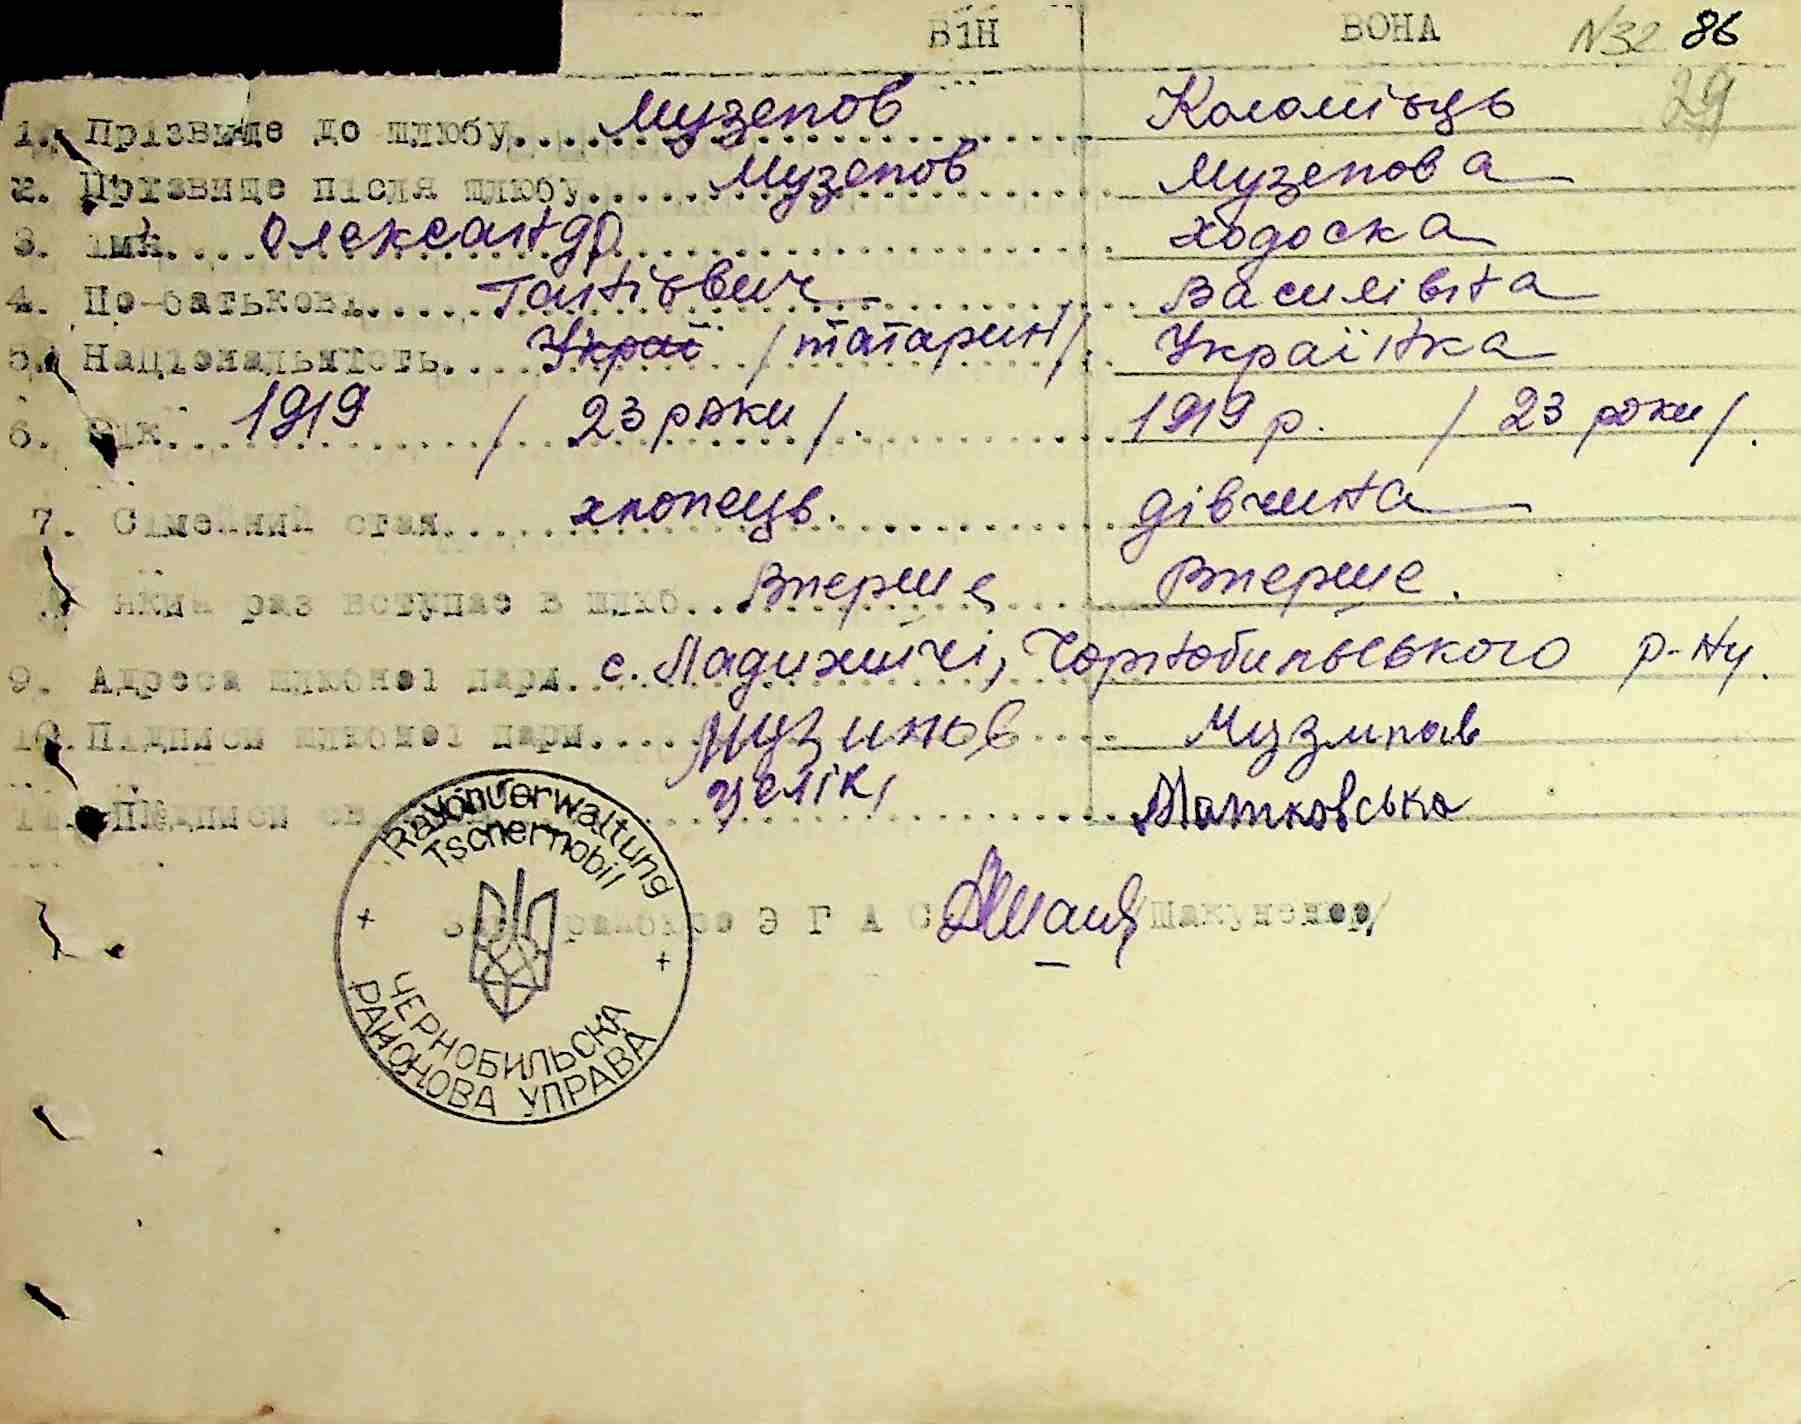 ВІН ВОНА N32 86
29
1. Прізвище до шлюбу... Музепов Коломієць
2. Прізвище після шлюбу... Музепов Музепова
3. Імя... Олександр Ходоска
4. По-батькові... Танієвич Василівна
5. Національність... Украї /татарин/. Українка
6. Рік... 1919 / 23 роки /. 1919 р. / 23 роки /.
7. Сімейний стан... хлопець. дівчина
який раз вступає в шлюб... Вперше Вперше.
9. Адреса шлюбної пари... с. Ладижичі, Чорнобильського р-ну.
10. Підписи шлюбної пари...
11. Підписи Матковська
Зав. районов ЗГАС
Rayonverwaltung
Tschernobil
ЧЕРНОБИЛЬСКА
РАЙОНОВА УПРАВА